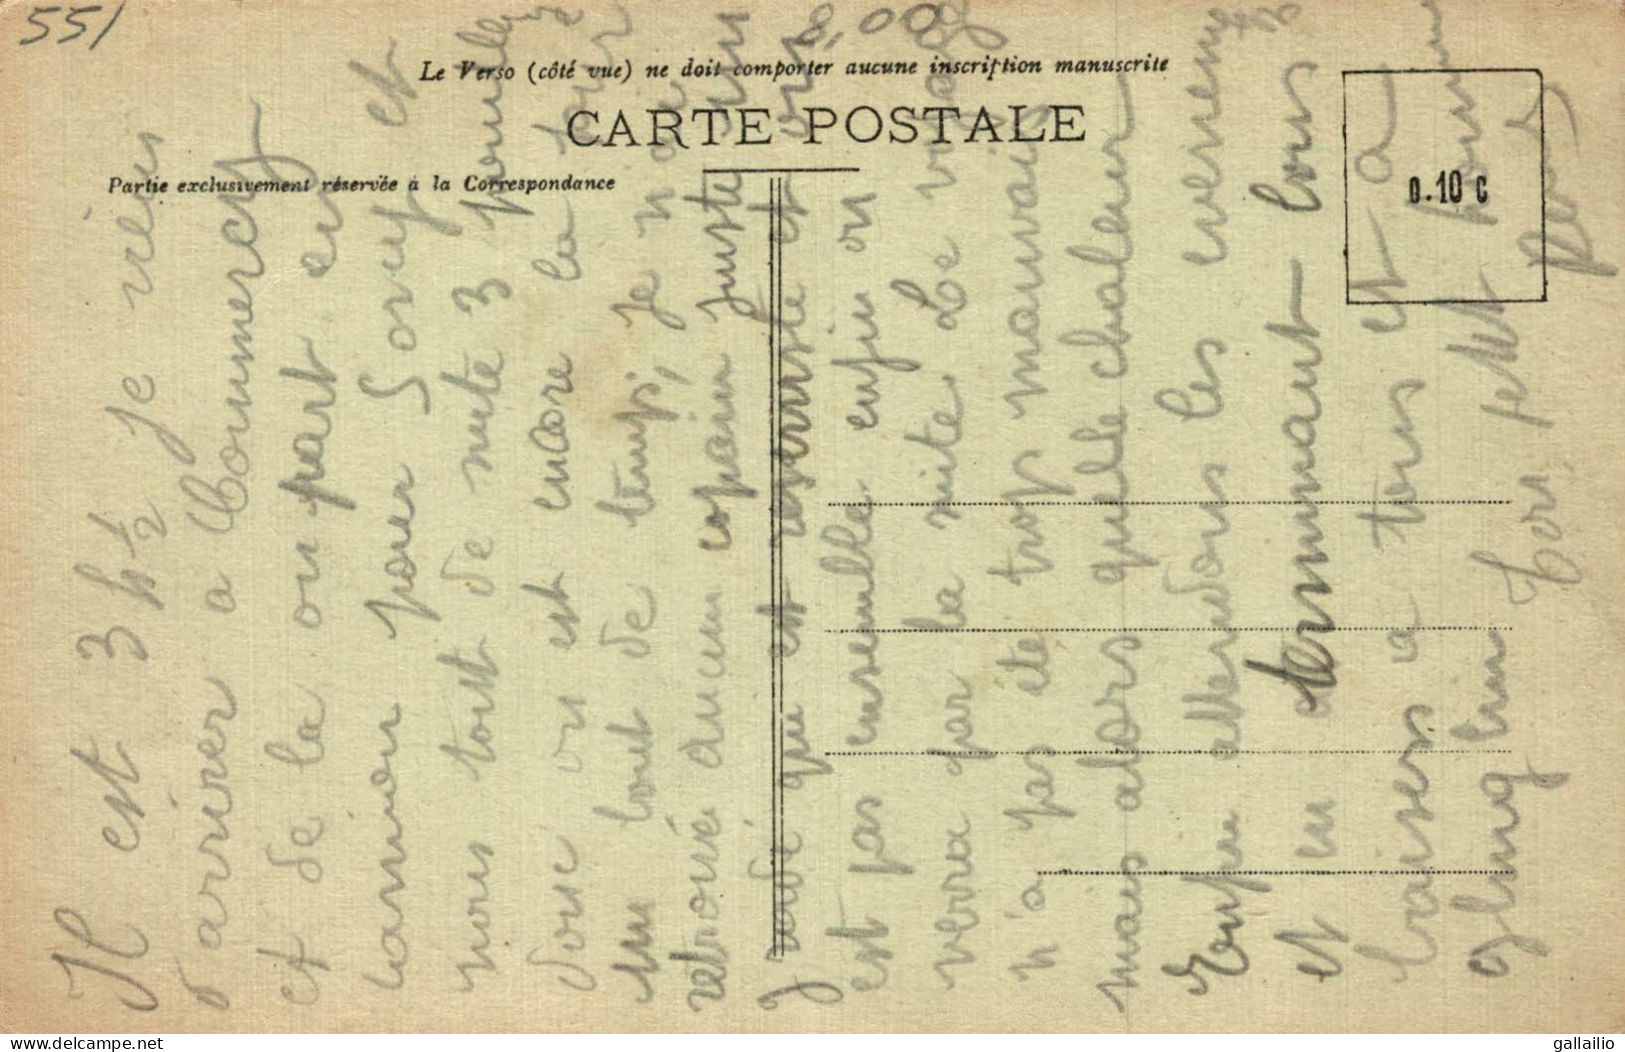 551
8,00
Le Verso (côté vue) ne doit comporter aucune inscription manuscrite
CARTE POSTALE
Partie exclusivement réservée à la Correspondance
0.10 c
Il est 3 h 1/2 je viens
d'arriver a Commercy
et de la on part en
camion pour Sorcy et
nous tout de suite 3
donc on est encore la
un bout de temps, je n'ai
retrouvé aucun copain juste
J qui est et
est pas ensemble enfin on
verra par la suite Le voyage
n'a pas été trop mauvais
mais alors quelle chaleur
Enfin attendons les evenem
et en terminant bons
baisers a tous et a
Ton petit
www.delcampe.net
gallailio